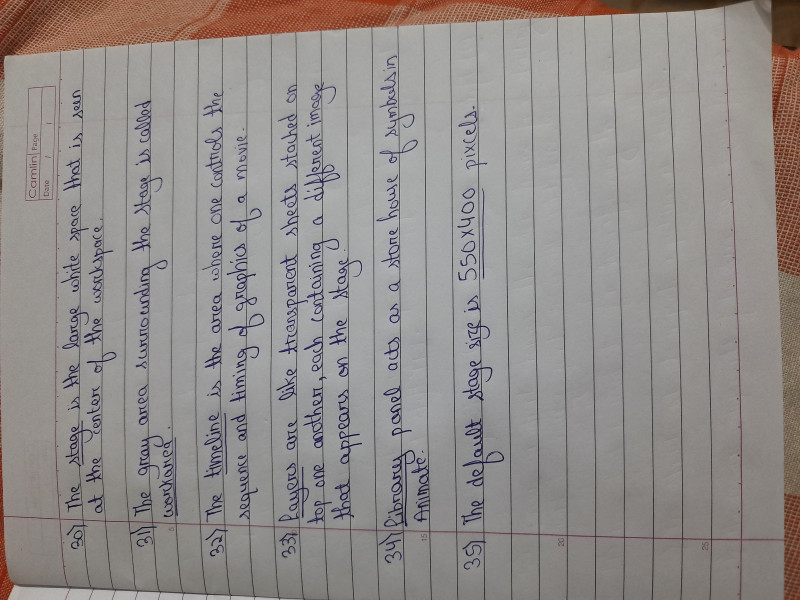 Camlin Page
Date / /
30) The stage is the large white space that is seen
at the center of the workspace.
31) The gray area surrounding the stage is called
workarea.
32) The timeline is the area where one controls the
sequence and timing of graphics of a movie.
33) Layers are like transparent sheets stacked on
top one another, each containing a different image
that appears on the stage.
34) Library panel acts as a store house of symbols in
Animate.
35) The default stage size is 550X400 pixcels.
5
15
20
25